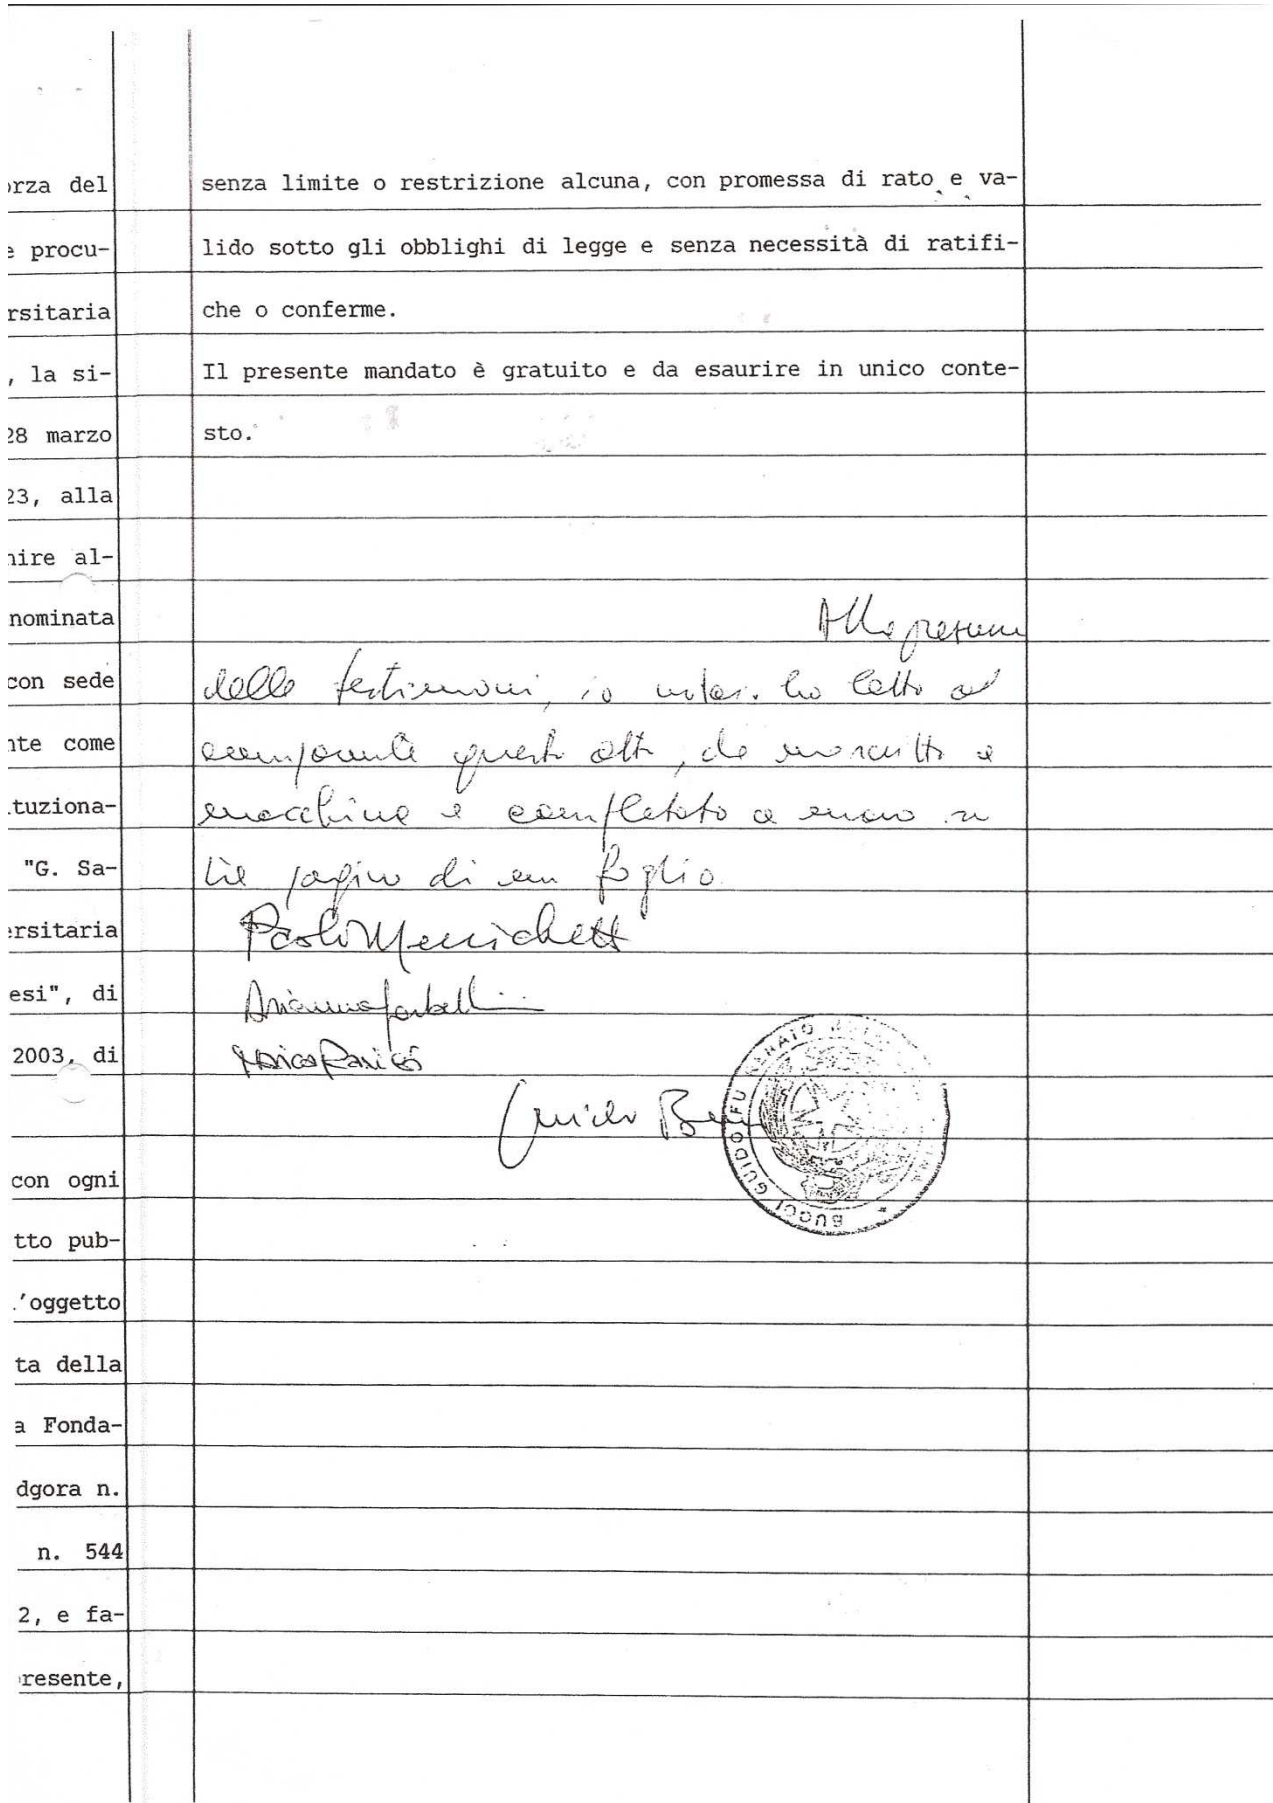 rza del
e procu-
rsitaria
, la si-
28 marzo
23, alla
nire al-
nominata
con sede
nte come
tuziona-
"G. Sa-
ersitaria
esi", di
2003, di
con ogni
tto pub-
l'oggetto
ta della
a Fonda-
dgora n.
n. 544
2, e fa-
resente,
senza limite o restrizione alcuna, con promessa di rato e va-
lido sotto gli obblighi di legge e senza necessità di ratifi-
che o conferme.
Il presente mandato è gratuito e da esaurire in unico conte-
sto.
Alla presenza
delle testimoni, io notaio ho letto al
comparente questo atto, da me scritto a
macchina e completato a mano su
tre pagine di un foglio.
Paolo Mennichetti
Arianna
Guido Bucci
BUCCI GUIDO FU RENATO